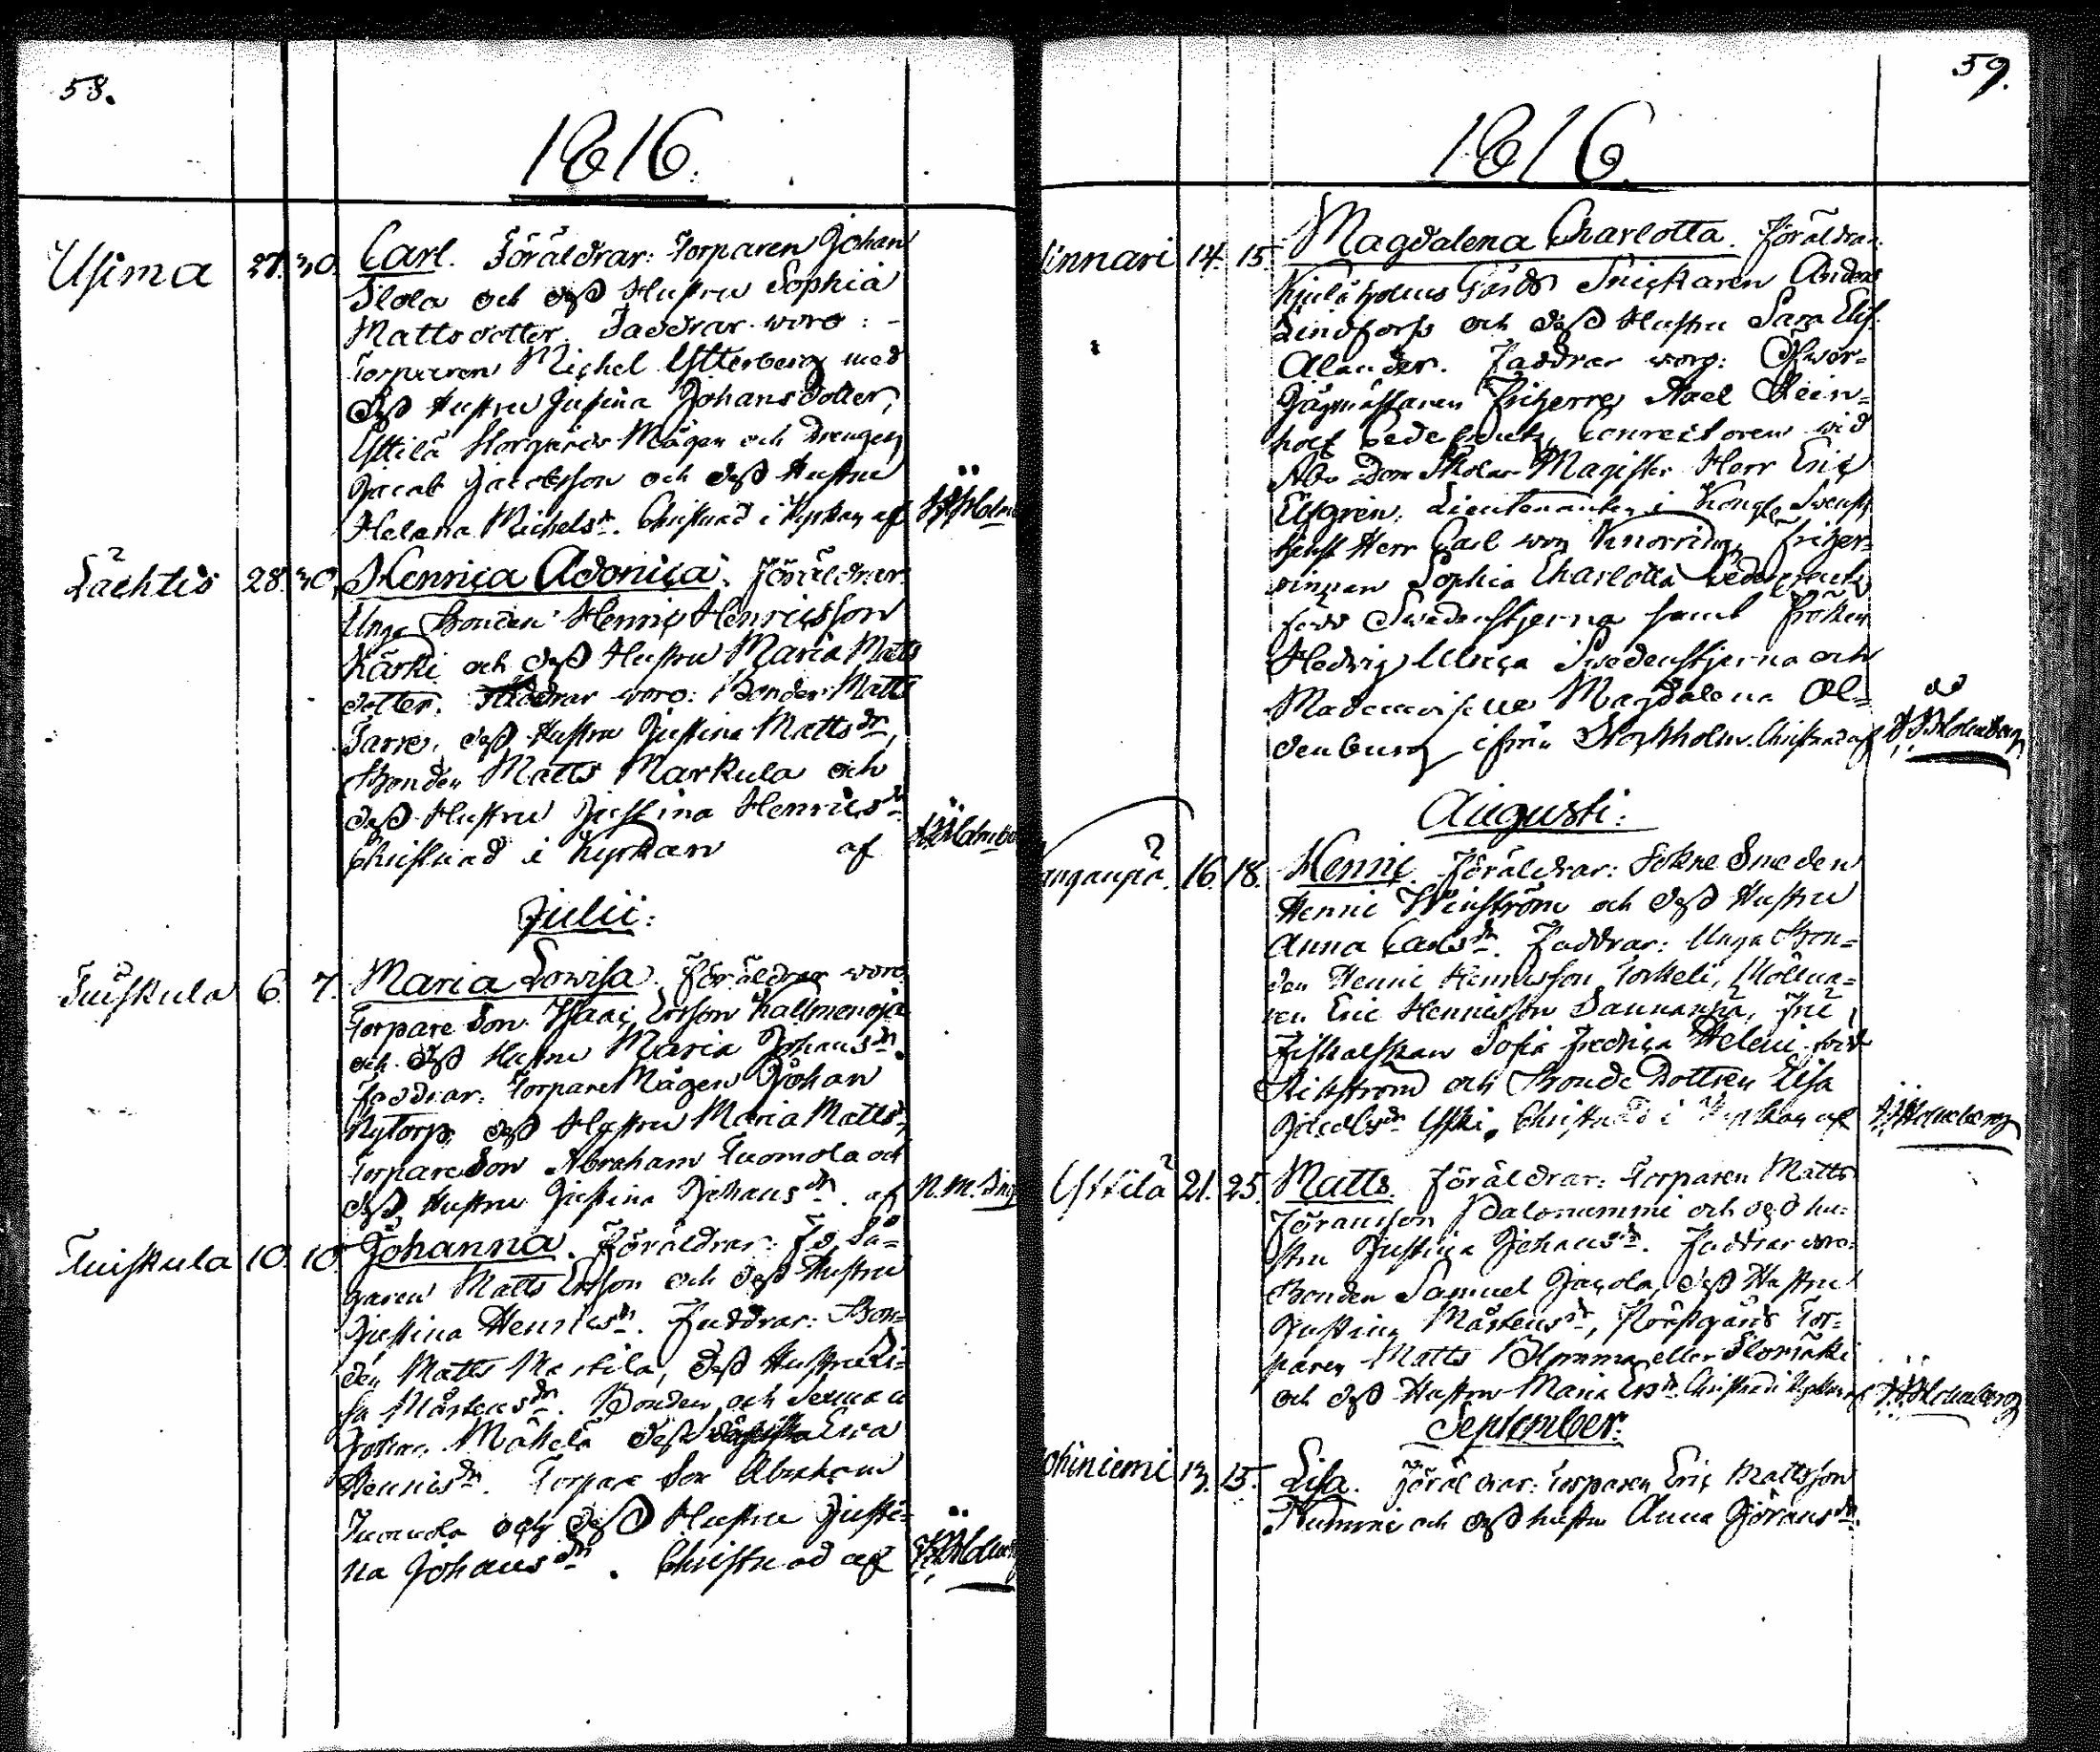 58.
1816.
Usima 27. 30. Carl. Föräldrar: Torparen Johan
Ilola och dess Hustru Sophia
Mattsdotter. Faddrar woro:
Torparen Michel Ytterberg med
dess Hustru Justina Johansdotter,
Yttilä Storgårds Mågen och Drengen
Jacob Jacobsson och dess Hustru
Helena Michelsdr. Christnad i Kyrkan af
Lächtis 28. 30. Henrica Adonica. Föräldrar:
Unge Bonden Henric Henricsson
Kärki och dess Hustru Maria Matts
dotter. Faddrar woro: Bonden Matts
Sarre, dess Hustru Justina Mattsdr,
Bonden Matts Markula och
dess Hustru Justina Henricsdr.
Christnad i Kyrkan af
Julii:
Tuiskula 6. 7. Maria Lowisa. Föräldrar woro
Torpare Son Isaac Ersson Kallmenoja
och dess Hustru Maria Johansdr.
Faddrar: Torpare Mågen Johan
Nytorp, dess Hustru Maria Mattsdr,
Torpare Son Abraham Tuomola och
dess Hustru Justina Johansdr. af
Tuiskula 10. 10. Johanna. Föräldrar:
garen Matts Ersson och dess Hustru
Justina Henricsdr. Faddrar: Bon=
den Matts Mattila, dess Hustru Li=
sa Mårtensdr. Bonden och
Johan Mäkelä dess Lisa
Henricsdr. Torpare Son Abraham
Tuomola och dess Hustru Justi=
na Johansdr. Christnad af
59.
1816.
innari 14. 15. Magdalena Charlotta. Föräldrar:
Kjuloholms Gårds Snickaren Anders
Lindfors och dess Hustru Sara Elis.
Alander. Faddrar woro: Öfwer=
Jägmästaren Friherre Axel Rein=
hold Cedercreutz, Conrectoren wid
Åbo Dom Skolan Magister Herr Eric
Elfgren, Lieutenanten i Kongl. Swensk
tjenst Herr Carl von Knorring, Friher=
rinnan Sophia Charlotta Cedercreutz
född Swedenstjerna samt Fröken
Hedwig Ulrica Swedenstjerna och
Mademoiselle Magdalena Ol=
denburg ifrån Stockholm. Christnad af J. J. Holmberg
Augusti:
16. 18. Henric. Föräldrar: Sokne Smeden
Henric Winström och dess Hustru
Anna Carlsdr. Faddrar: Unga Bon=
den Henric Henricsson Torkeli, Mölna=
ren Eric Henricsson
Sofia Fredrica född
och Bonde Dottren Lisa
Jacobsdr Christnad i Kyrkan af J. J. Holmberg
Yttilä 21. 25. Matts. Föräldrar: Torparen Matts
Göransson Palonummi och dess hu=
stru Justina Johansdr. Faddrar woro:
Bonden Samuel Jacola, dess Hustru
Justina Mårtensdr, Prästgårds Tor=
paren Matts eller Ilomäki
och dess Hustru Maria Ersdr. Christnad i Kyrkan af J. J. Holmberg
September:
ohiniemi 13. 15. Lisa. Föräldrar: Torparen Eric Mattsson
Nummi och dess hustru Anna Göransdr.